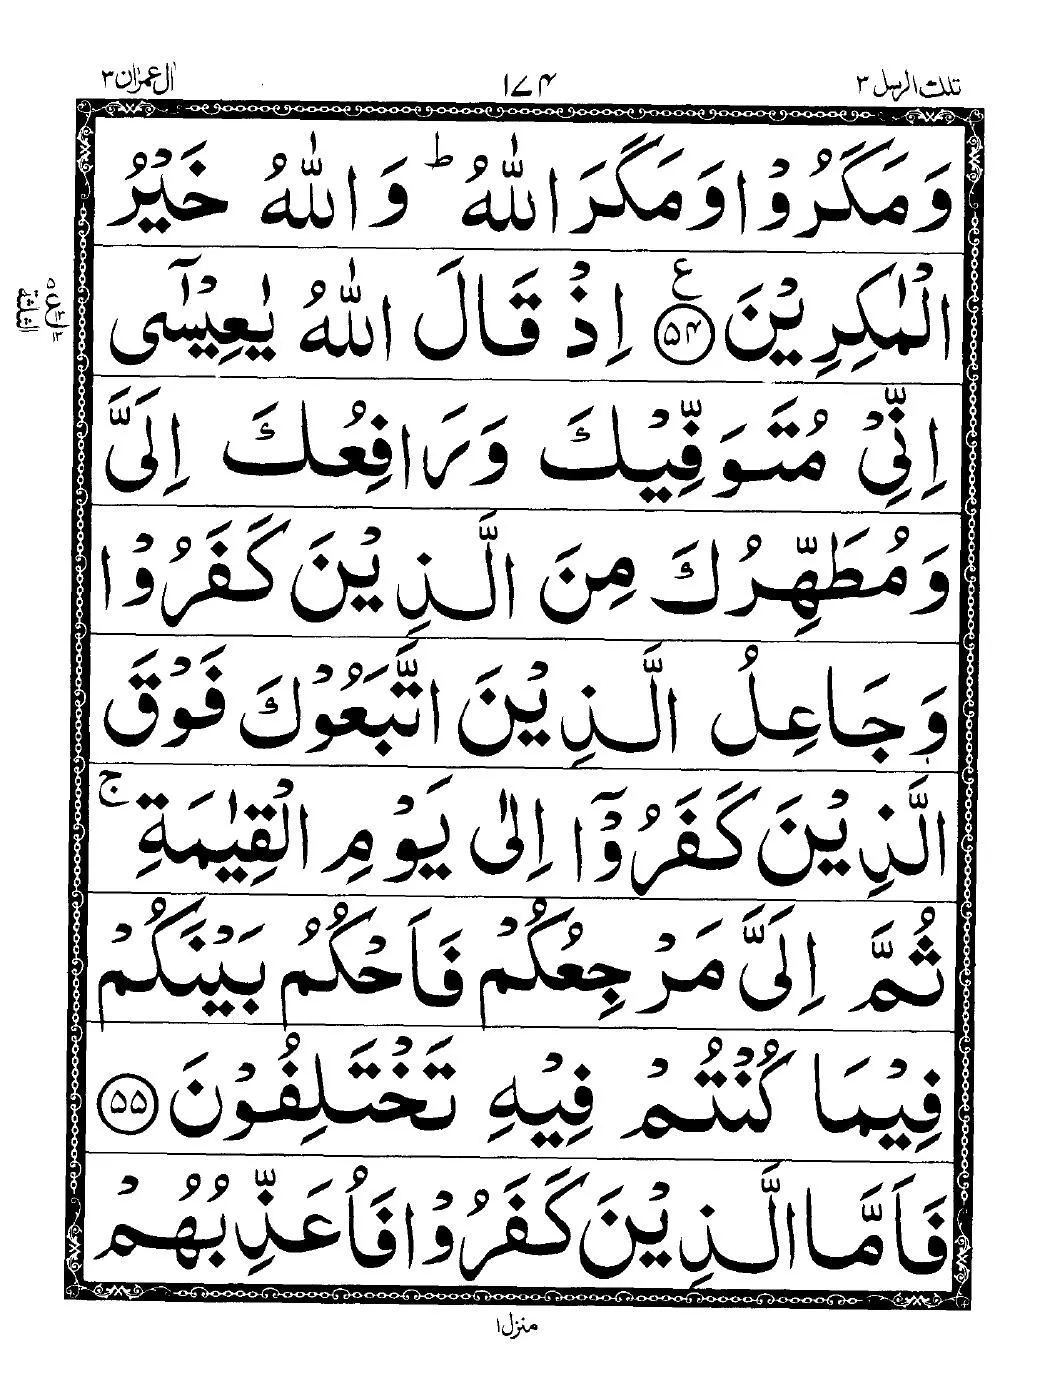 تلك الرسل ٣
١٧٤
اٰل عمرٰن ٣
وَمَكَرُوْا وَمَكَرَ اللّٰهُ ؕ وَاللّٰهُ خَيْرُ
الْمٰكِرِيْنَ ۝۵۴ ع اِذْ قَالَ اللّٰهُ يٰعِيْسٰۤى
اِنِّىْ مُتَوَفِّيْكَ وَرَافِعُكَ اِلَىَّ
وَمُطَهِّرُكَ مِنَ الَّذِيْنَ كَفَرُوْا
وَجَاعِلُ الَّذِيْنَ اتَّبَعُوْكَ فَوْقَ
الَّذِيْنَ كَفَرُوْۤا اِلٰى يَوْمِ الْقِيٰمَةِ ۚ
ثُمَّ اِلَىَّ مَرْجِعُكُمْ فَاَحْكُمُ بَيْنَكُمْ
فِيْمَا كُنْتُمْ فِيْهِ تَخْتَلِفُوْنَ ۝۵۵
فَاَمَّا الَّذِيْنَ كَفَرُوْا فَاُعَذِّبُهُمْ
منزل ١